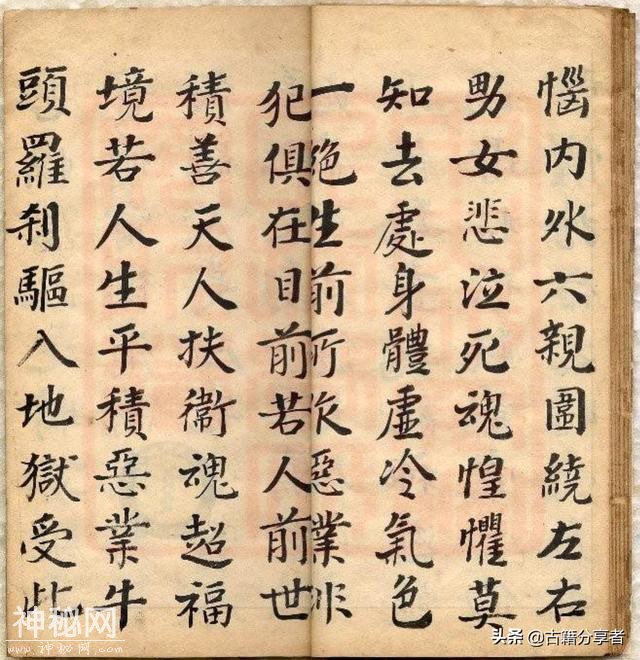 惱内外六親圍繞左右
男女悲泣死魂惶懼莫
知去處身體虛冷氣色
一絶生前所惡業非
犯俱在目前若人前世
積善天人扶衞魂超福
境若人生平積惡業牛
頭羅刹驅入地獄受此
神秘网
www.神秘网.com
头条 @古籍分享者